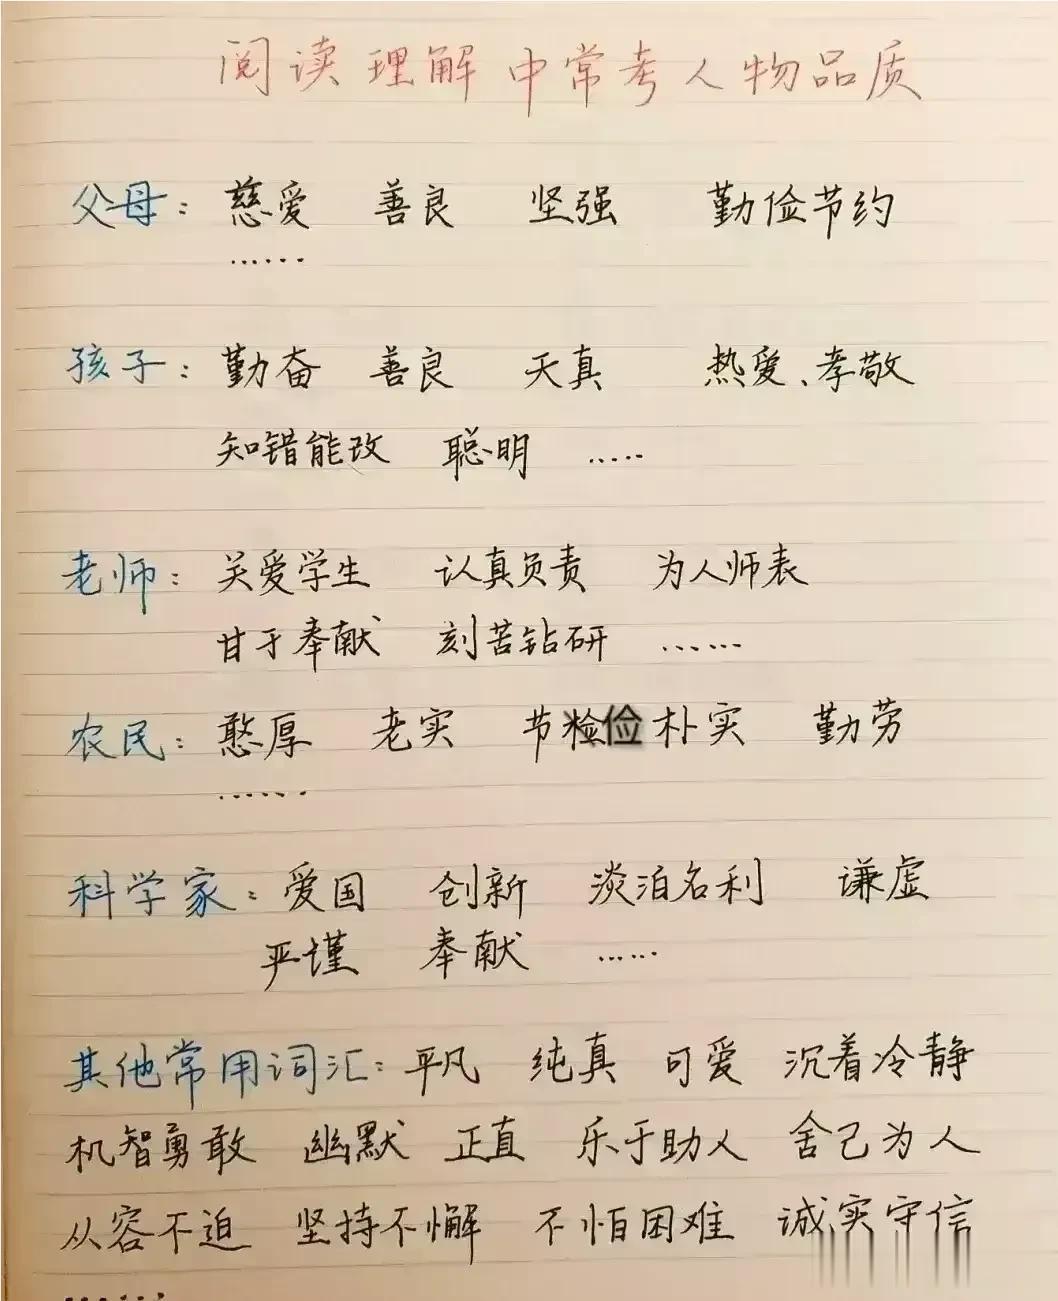 阅读理解中常考人物品质
父母：慈爱 善良 坚强 勤俭节约
……
孩子：勤奋 善良 天真 热爱、孝敬
知错能改 聪明 ……
老师：关爱学生 认真负责 为人师表
甘于奉献 刻苦钻研 ……
农民：憨厚 老实 节俭 朴实 勤劳
……
科学家：爱国 创新 淡泊名利 谦虚
严谨 奉献 ……
其他常用词汇：平凡 纯真 可爱 沉着冷静
机智勇敢 幽默 正直 乐于助人 舍己为人
从容不迫 坚持不懈 不怕困难 诚实守信
……